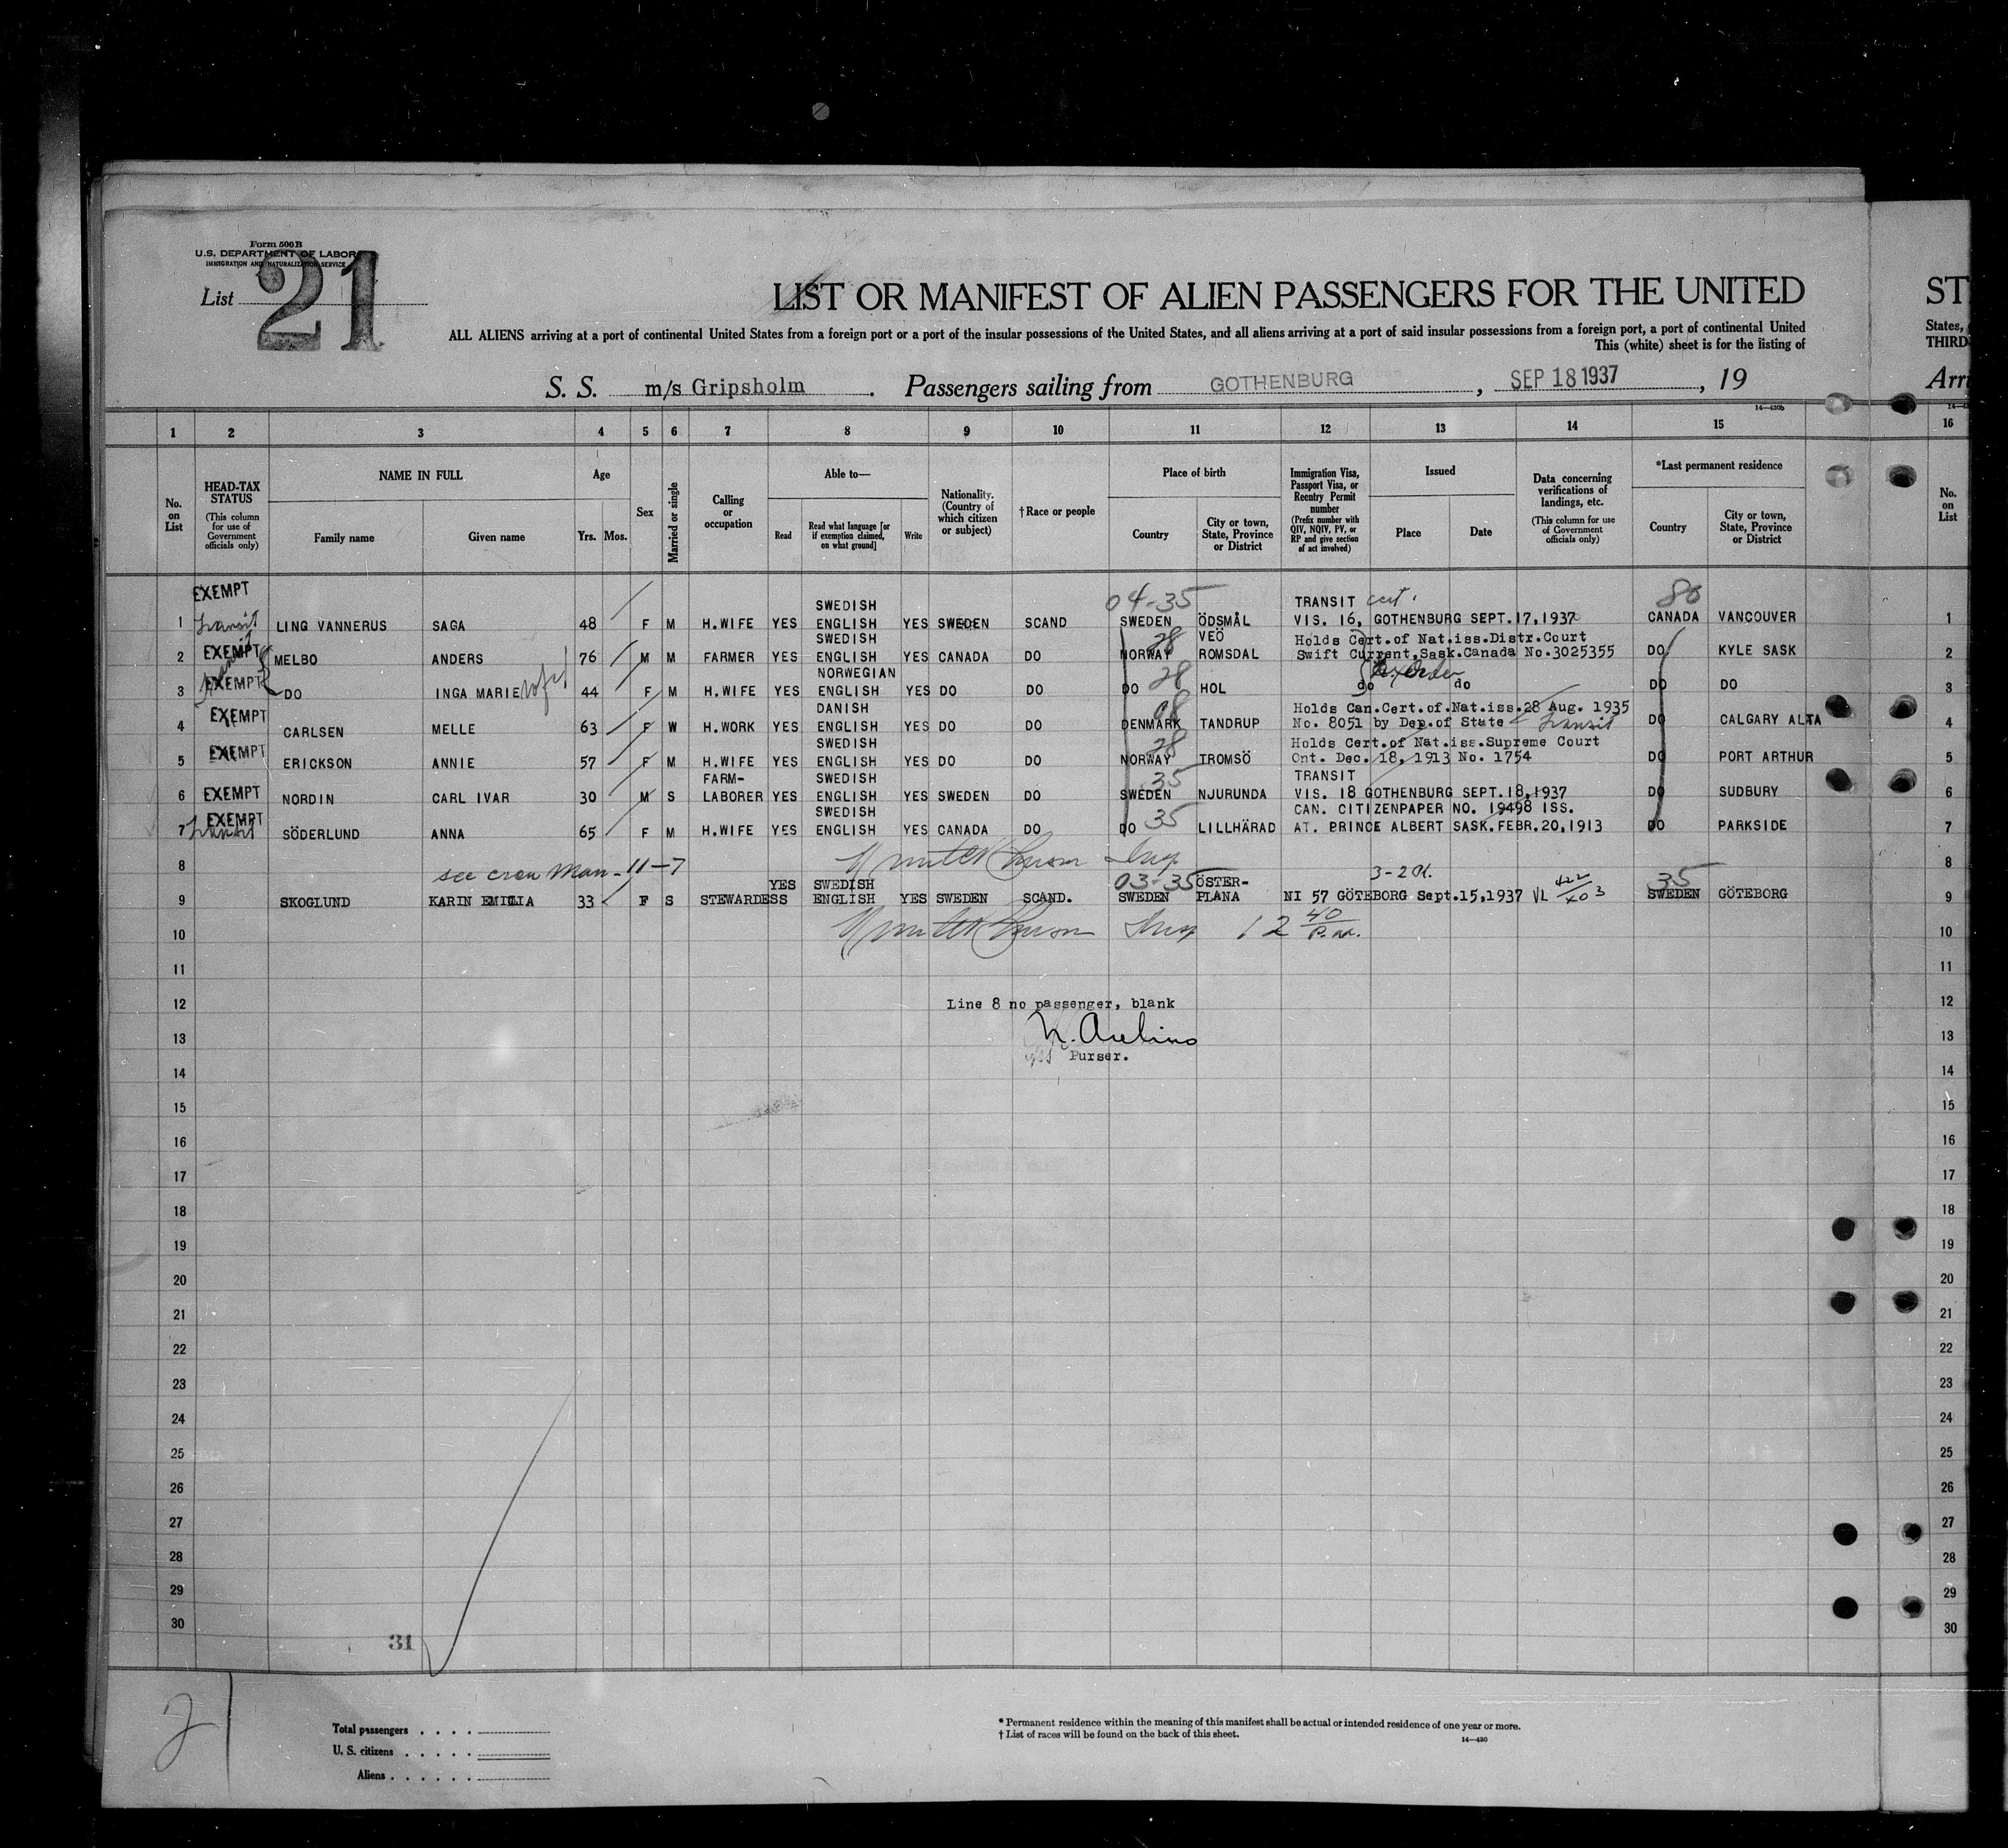 Form 500B
U.S. DEPARTMENT OF LABOR
IMMIGRATION AND NATURALIZATION SERVICE
List 21
LIST OR MANIFEST OF ALIEN PASSENGERS FOR THE UNITED
ST
ALL ALIENS arriving at a port of continental United States from a foreign port or a port of the insular possessions of the United States, and all aliens arriving at a port of said insular possessions from a foreign port, a port of continental United
States,
This (white) sheet is for the listing of
THIRD
S. S. m/s Gripsholm. Passengers sailing from GOTHENBURG, SEP 18 1937, 19
Arri
14—430b
1 2 3 4 5 6 7 8 9 10 11 12 13 14 15 16
No. on List
HEAD-TAX STATUS
(This column for use of Government officials only)
NAME IN FULL
Family name
Given name
Age
Yrs. Mos.
Sex
Married or single
Calling or occupation
Able to—
Read
Read what language [or if exemption claimed, on what ground]
Write
Nationality. (Country of which citizen or subject)
†Race or people
Place of birth
Country
City or town, State, Province or District
Immigration Visa, Passport Visa, or Reentry Permit number
(Prefix number with QIV, NQIV, PV, or RP and give section of act involved)
Issued
Place
Date
Data concerning verifications of landings, etc.
(This column for use of Government officials only)
*Last permanent residence
Country
City or town, State, Province or District
No. on List
EXEMPT SWEDISH 04-35 TRANSIT cert. 80
1 transit LING VANNERUS SAGA 48 F M H.WIFE YES ENGLISH YES SWEDEN SCAND SWEDEN ÖDSMÅL VIS. 16, GOTHENBURG SEPT.17,1937 CANADA VANCOUVER 1
SWEDISH 28 VEÖ Holds Cert.of Nat.iss.Distr.Court
2 EXEMPT MELBO ANDERS 76 M M FARMER YES ENGLISH YES CANADA DO NORWAY ROMSDAL Swift Current,Sask.Canada No.3025355 DO KYLE SASK 2
NORWEGIAN 28
3 EXEMPT DO INGA MARIE wife 44 F M H.WIFE YES ENGLISH YES DO DO DO HOL do do DO DO 3
DANISH 08 Holds Can.Cert.of.Nat.iss.28 Aug. 1935
4 EXEMPT CARLSEN MELLE 63 F W H.WORK YES ENGLISH YES DO DO DENMARK TANDRUP No. 8051 by Dep.of State transit DO CALGARY ALTA 4
SWEDISH 28 Holds Cert.of Nat.iss.Supreme Court
5 EXEMPT ERICKSON ANNIE 57 F M H.WIFE YES ENGLISH YES DO DO NORWAY TROMSÖ Ont. Dec. 18, 1913 No. 1754 DO PORT ARTHUR 5
FARM- SWEDISH 35 TRANSIT
6 EXEMPT NORDIN CARL IVAR 30 M S LABORER YES ENGLISH YES SWEDEN DO SWEDEN NJURUNDA VIS. 18 GOTHENBURG SEPT.18,1937 DO SUDBURY 6
EXEMPT SWEDISH 35 CAN. CITIZENPAPER NO. 19498 ISS.
7 transit SÖDERLUND ANNA 65 F M H.WIFE YES ENGLISH YES CANADA DO DO LILLHÄRAD AT. PRINCE ALBERT SASK.FEBR.20,1913 DO PARKSIDE 7
8 see crew Man. 11-7 Insp 3-2 8
YES SWEDISH 03-35 ÖSTER- 35
9 SKOGLUND KARIN EMILIA 33 F S STEWARDESS ENGLISH YES SWEDEN SCAND. SWEDEN PLANA NI 57 GÖTEBORG Sept.15,1937 VL SWEDEN GÖTEBORG 9
10 Insp 12 40 P.M. 10
11 11
12 Line 8 no passenger, blank 12
13 13
Purser.
14 14
15 15
16 16
17 17
18 18
19 19
20 20
21 21
22 22
23 23
24 24
25 25
26 26
27 27
28 28
29 29
30 30
31
21
Total passengers
U. S. citizens
Aliens
* Permanent residence within the meaning of this manifest shall be actual or intended residence of one year or more.
† List of races will be found on the back of this sheet.
14—430